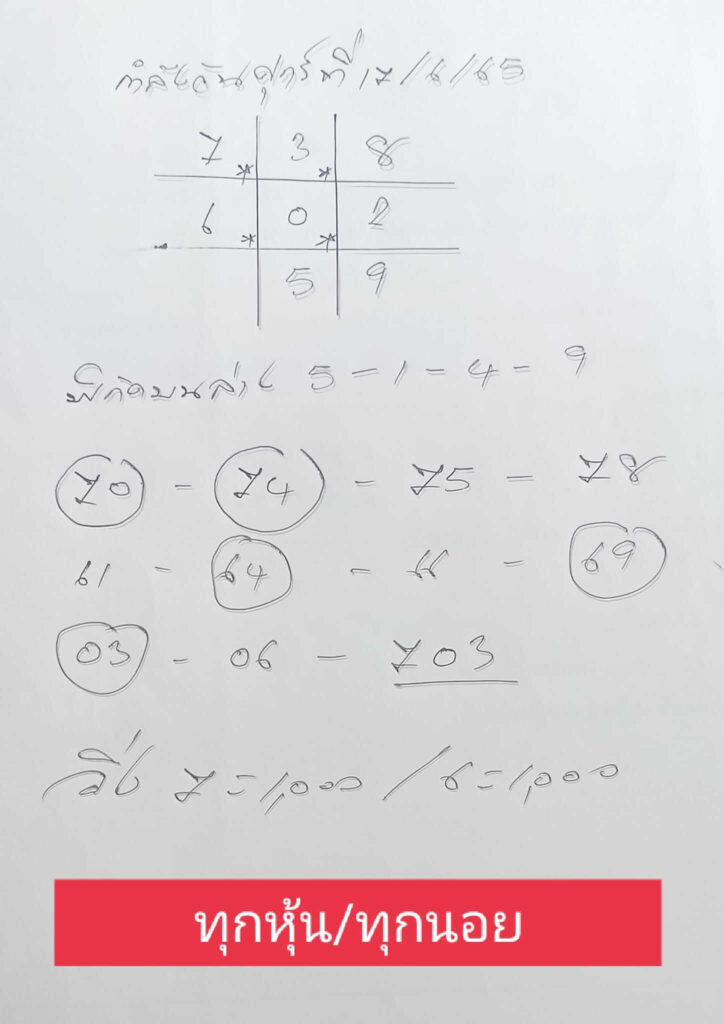 กำลังวันศุกร์ที่ 17/6/65
7 * 3 * 8
6 * 0 * 2
5 9
พิกัดบนล่าง 5 - 1 - 4 - 9
70 - 74 - 75 - 78
61 - 64 - 66 - 69
03 - 06 - 703
วิ่ง 7 = 1,000 / 6 = 1,000
ทุกหุ้น/ทุกนอย